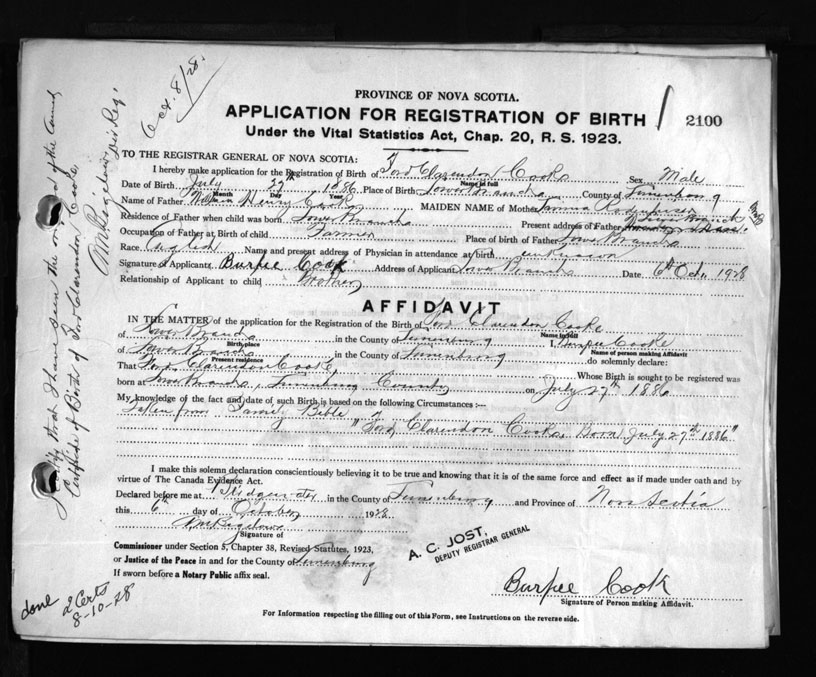 PROVINCE OF NOVA SCOTIA.
APPLICATION FOR REGISTRATION OF BIRTH
2100
Under the Vital Statistics Act, Chap. 20, R. S. 1923.
Oct. 8/28.
TO THE REGISTRAR GENERAL OF NOVA SCOTIA:
I hereby make application for the Registration of Birth of Ford Clarendon Cooke Sex Male
Name in full
Date of Birth July 27th 1886 Place of Birth Lower Branch County of Lunenburg
Month Day Year
Name of Father Henry Cooke MAIDEN NAME of Mother
Residence of Father when child was born Lower Branch Present address of Father
Occupation of Father at Birth of child Farmer Place of birth of Father Lower Branch
Race English Name and present address of Physician in attendance at birth unknown
Signature of Applicant Burpee Cook Address of Applicant Lower Branch Date 6th Oct. 1928
Relationship of Applicant to child Brother
AFFIDAVIT
IN THE MATTER of the application for the Registration of the Birth of Ford Clarendon Cooke
Name in full
of Lower Branch in the County of Lunenburg I, Burpee Cooke
Birth place
Name of person making Affidavit
of Lower Branch in the County of Lunenburg do solemnly declare:
Present residence
That Ford Clarendon Cooke Whose Birth is sought to be registered was
born at Lower Branch, Lunenburg County on July 27th 1886
My knowledge of the fact and date of such Birth is based on the following Circumstances :—
Taken from Family Bible
"Ford Clarendon Cooke, Born July 27th 1886"
I make this solemn declaration conscientiously believing it to be true and knowing that it is of the same force and effect as if made under oath and by
virtue of The Canada Evidence Act.
Declared before me at Bridgewater in the County of Lunenburg and Province of Nova Scotia
this 6th day of October 1928
Signature of
Commissioner under Section 5, Chapter 38, Revised Statutes, 1923,
or Justice of the Peace in and for the County of Lunenburg
If sworn before a Notary Public affix seal.
A. C. JOST,
DEPUTY REGISTRAR GENERAL
Burpee Cook
Signature of Person making Affidavit.
For Information respecting the filling out of this Form, see Instructions on the reverse side.
done 2 Certs
8-10-28
I certify that I have seen the original of the
Certificate of Birth of Ford Clarendon Cooke.
Div Reg.